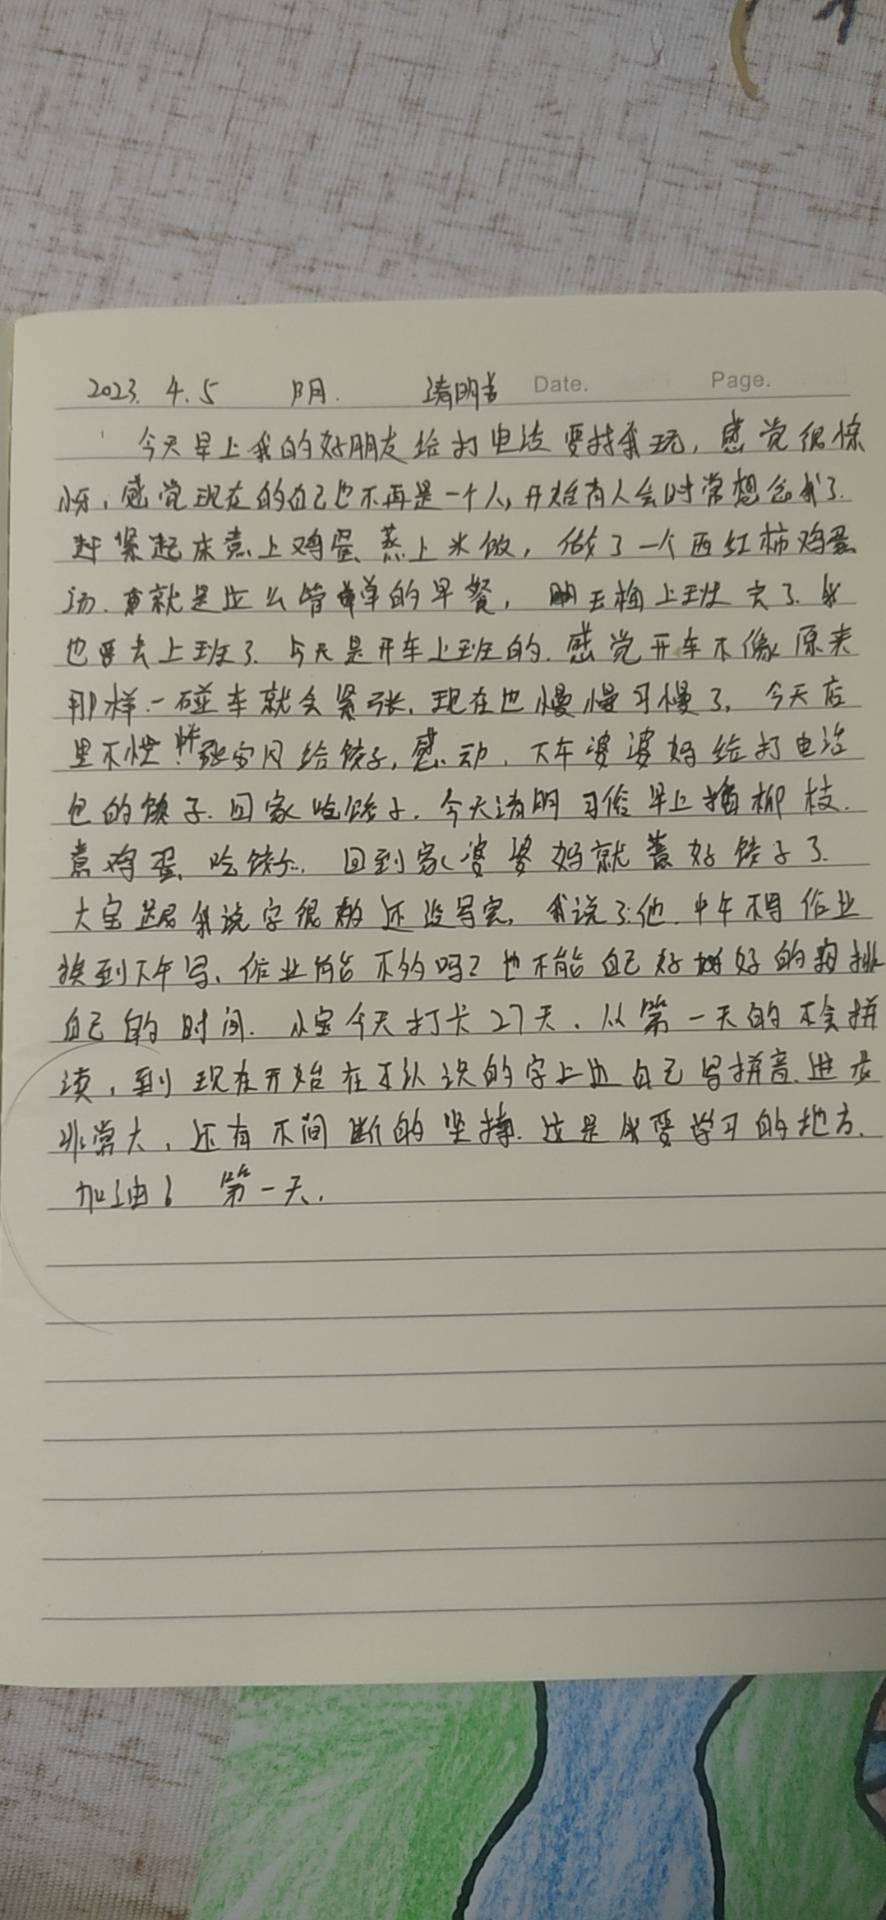 2023. 4. 5 阴. 清明节 Date. Page.
今天早上我的好朋友给打电话要找我玩，感觉很惊
讶，感觉现在的自己也不再是一个人，开始有人会时常想念我了.
赶紧起床煮上鸡蛋 蒸上米饭，做了一个西红柿鸡蛋
汤. 就是这么简单的早餐， 上班去了. 我
也要去上班了. 今天是开车上班的. 感觉开车不像原来
那样一碰车就会紧张. 现在也慢慢习惯了. 今天店
里不忙 给饺子, 感动. 下午婆婆妈给打电话
包的饺子. 回家吃饺子. 今天清明 习俗 早上插柳枝.
煮鸡蛋, 吃饺子. 回到家婆婆妈就煮好饺子了.
大宝跟我说字很多还没写完, 我说了他. 中午不写作业
挨到下午写. 作业能不多吗? 也不能自己好好的安排
自己的时间. 小宝今天打卡27天. 从第一天的不会拼
读, 到现在开始在不认识的字上边自己写拼音. 进步
非常大, 还有不间断的坚持. 这是我要学习的地方.
加油! 第一天.